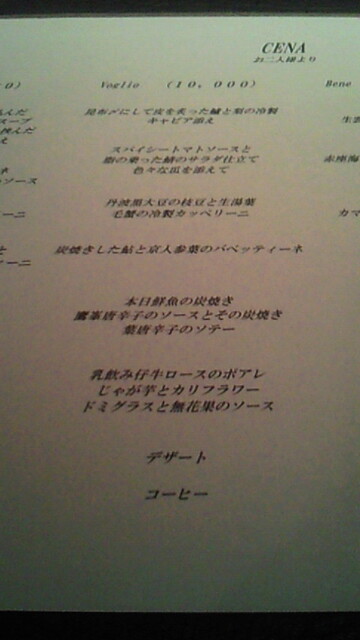 CENA
お二人様より
Voglio （１０，０００）
Bene
昆布〆にして皮を炙った鱸と梨の冷製
キャビア添え
スパイシートマトソースと
脂の乗った鯖のサラダ仕立て
色々な瓜を添えて
丹波黒大豆の枝豆と生湯葉
毛蟹の冷製カッペリーニ
炭焼きした鮎と京人参葉のバベッティーネ
本日鮮魚の炭焼き
鷹峯唐辛子のソースとその炭焼き
葉唐辛子のソテー
乳飲み仔牛ロースのポアレ
じゃが芋とカリフラワー
ドミグラスと無花果のソース
デザート
コーヒー